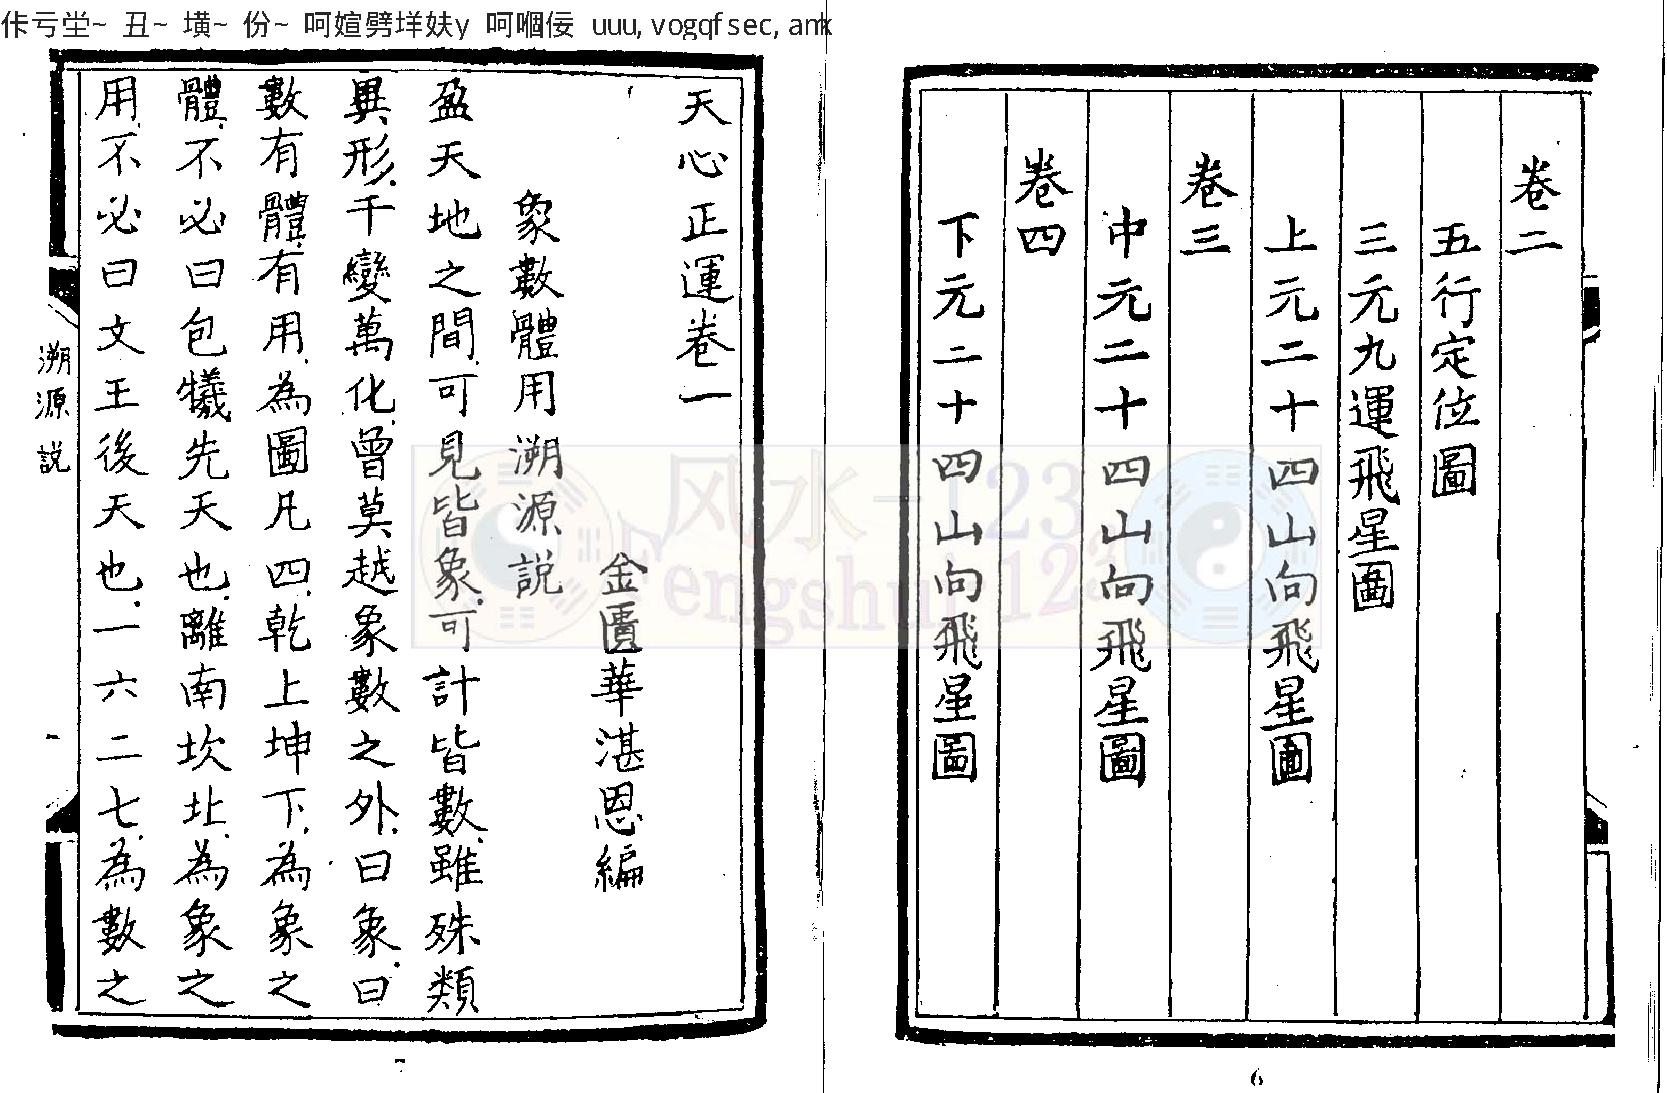 佧亏坣~ 丑~ 墴~ 份~ 呵媗劈垟妋y 呵嗰佞 uuu, vogqfsec, amk
卷二
五行定位圖
三元九運飛星圖
上元二十四山向飛星圖
卷三
中元二十四山向飛星圖
卷四
下元二十四山向飛星圖
6
天心正運卷一
金匱華湛恩編
象數體用溯源説
盈天地之間可見皆象可計皆數雖殊類
異形千變萬化曾莫越象數之外曰象曰
數有體有用為圖凡四乾上坤下為象之
體不必曰包犧先天也離南坎北為象之
用不必曰文王後天也一六二七為數之
溯源説
7
风水-123
Fengshui-123